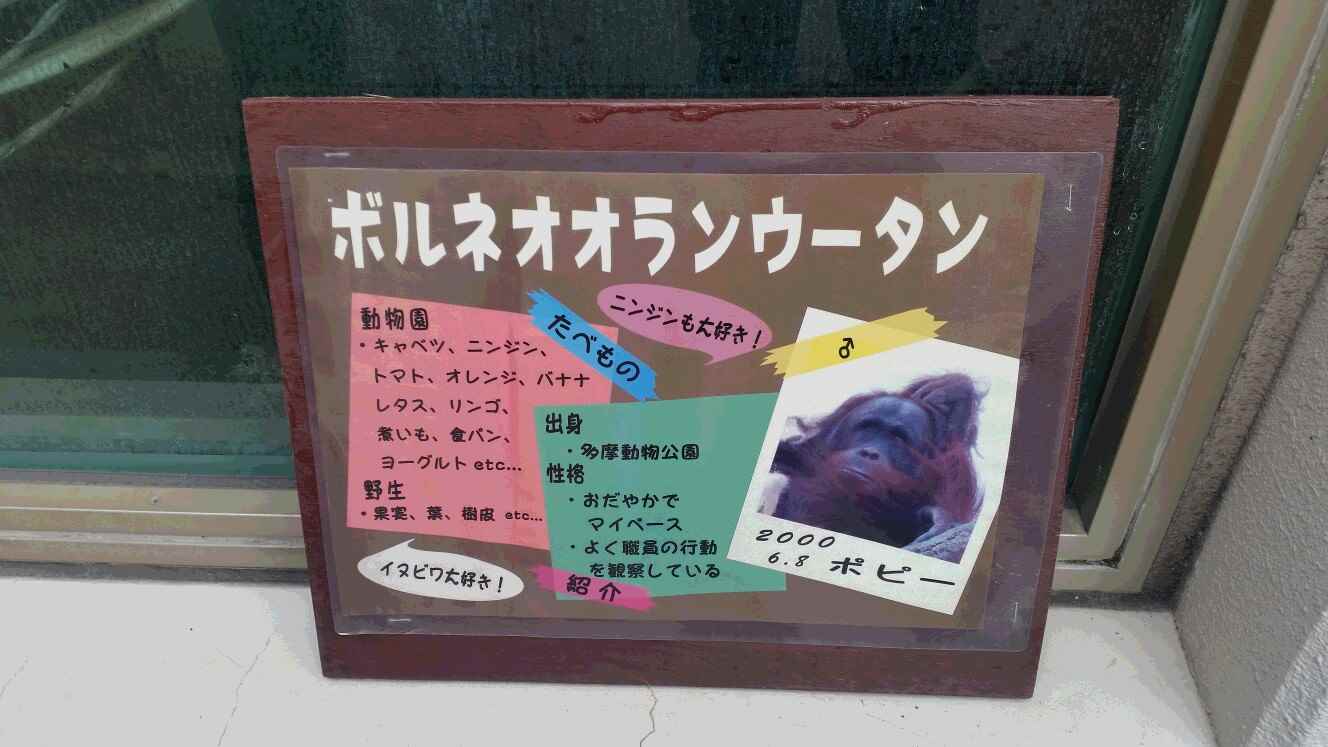 ボルネオオランウータン
たべもの
ニンジンも大好き！
動物園
・キャベツ、ニンジン、
トマト、オレンジ、バナナ
レタス、リンゴ、
煮いも、食パン、
ヨーグルト etc...
野生
・果実、葉、樹皮 etc...
イヌビワ大好き！
出身
・多摩動物公園
性格
・おだやかで
マイペース
・よく職員の行動
を観察している
紹介
♂
2000
6.8 ポピー